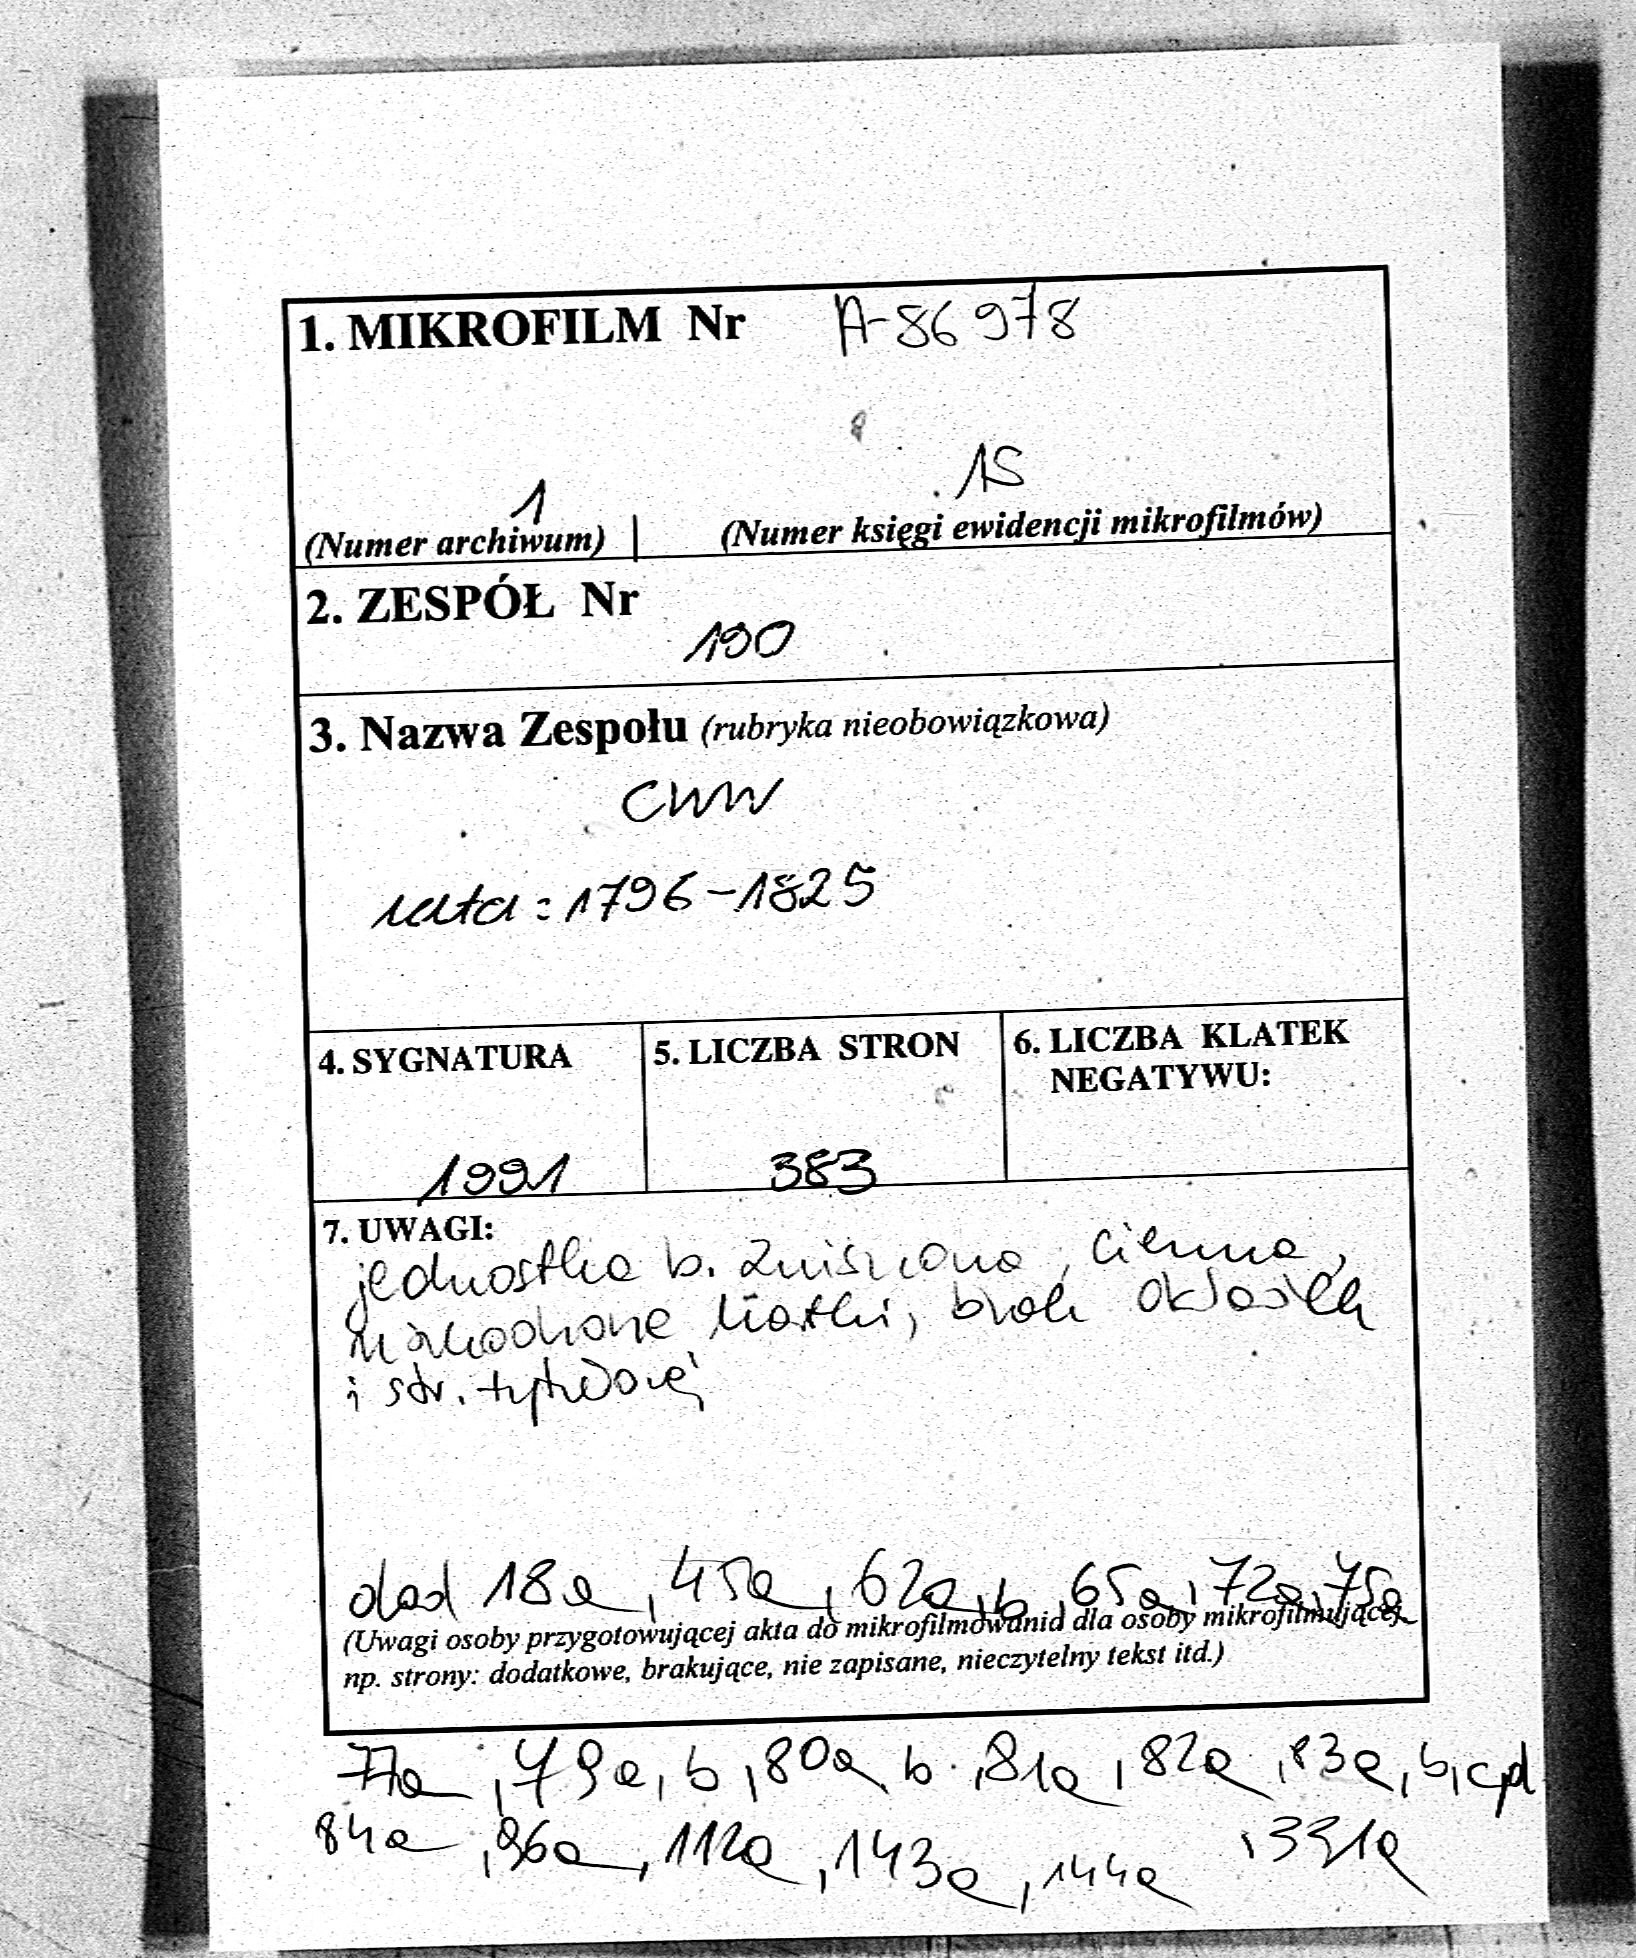 1. MIKROFILM Nr A-86978
1 15
(Numer archiwum) | (Numer księgi ewidencji mikrofilmów)
2. ZESPÓŁ Nr
190
3. Nazwa Zespołu (rubryka nieobowiązkowa)
CWW
lata: 1796-1825
4. SYGNATURA 5. LICZBA STRON 6. LICZBA KLATEK
NEGATYWU:
1991 383
7. UWAGI:
jednostka b. zniszczona, ciemna,
uszkodzone kartki, brak okładek
i str. tytułowej
dod 18a, 45a, 62a, b, 65a, 72a, 75a
(Uwagi osoby przygotowującej akta do mikrofilmowania dla osoby mikrofilmującej
np. strony: dodatkowe, brakujące, nie zapisane, nieczytelny tekst itd.)
77a, 79a, b, 80a, b, 81a, 82a, 83a, b, c, d
84a, 96a, 112a, 143a, 144a, 331a